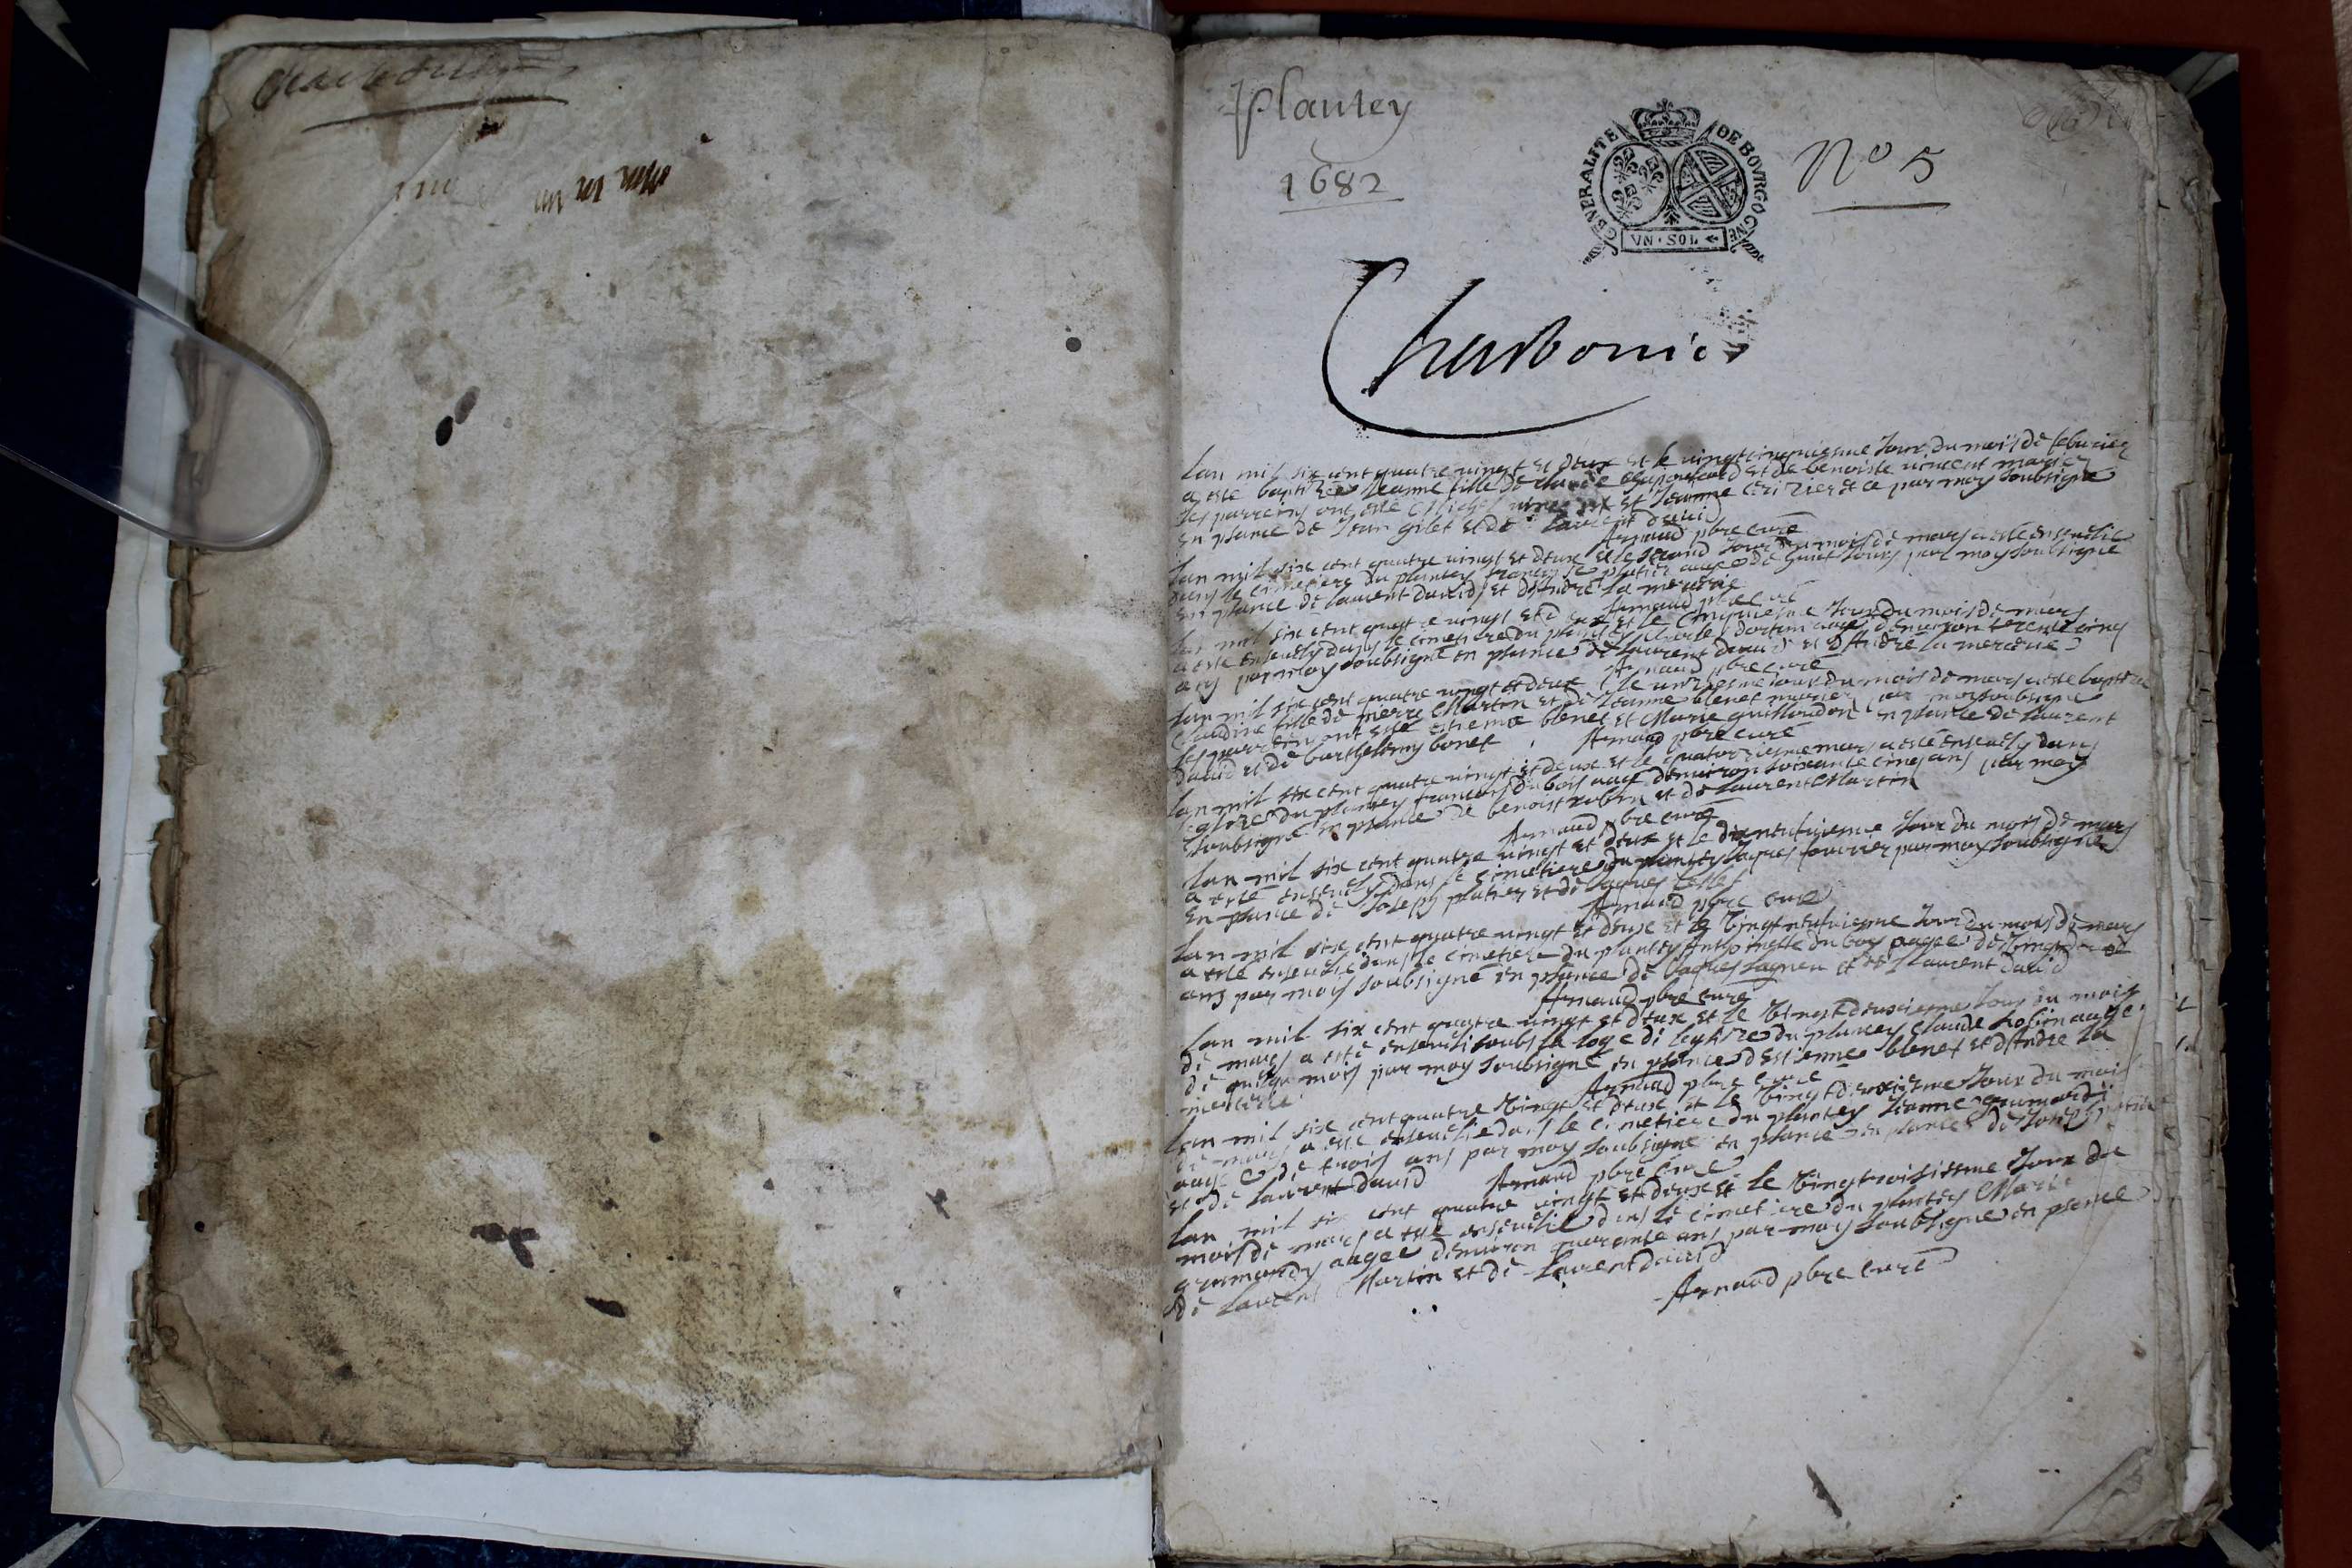 Plantey
1682
GENERALITE DE BOVRGOGNE
VN · SOL
No 5
Charbonier
Lan mil six cent quatre vingt et deux et le vingtcinquiesme Jour du mois de febvrier
a este baptizée Jeanne fille de claude et de benoiste vincent mariez
les parreins ont esté Michel et Jeanne et ce par moy soubsigne
En psance de Jean gilet et de laurent david
Arnaud pbre curé
Lan mil six cent quatre vingt et deux et le second Jour du mois de mars a este ensevelie
dans le cimetiere du plantey francoise platier aagée de huict Jours par moy soubsigne
En psance de laurent david et dandré la mercerie
Arnaud pbre curé
Lan mil six cent quatre vingt et deux et le cinquiesme Jour du mois de mars
a este ensevely dans le cimetiere du plantey Charles aagé denviron trente cinq
ans par moy soubsigné en psance de laurent david et dAndré la mercerie
Arnaud pbre curé
Lan mil six cent quatre vingt et deux le unziesme Jour du mois de mars a este baptizée
Claudine fille de pierre Martin et de Jeanne blenet mariez par moy soubsigne
les parreins ont esté estienne blenet et Marie guillaudon en psance de laurent
david et de barthelemy bonet
Arnaud pbre curé
Lan mil six cent quatre vingt et deux et le quatorziesme mars a esté ensevely dans
leglize du plantey francois du bois aagé denviron soixante cinq ans par moy
soubsigné en psance de benoist robin et de laurent Martin
Arnaud pbre curé
Lan mil six cent quatre vingt et deux et le dixneufviesme Jour du mois de mars
a esté ensevely dans le cimetiere du plantey Jaques fourrier par moy soubsigné
En psance de Joseph platier et de Jaques
Arnaud pbre curé
Lan mil six cent quatre vingt et deux et le vingt Jour du mois de mars
a esté ensevelie dans le cimetiere du plantey Anthoinette du bois aagée de
ans par moy soubsigné en psance de Jaques Jagneu et de laurent david
Arnaud pbre curé
Lan mil six cent quatre vingt et deux et le vingt deuxiesme Jour du mois
de mars a esté enseveli soubs la loge de leglize du plantey claude robin aagé
de mois par moy soubsigné en psance dEstienne blenet et dAndre la
mercerie
Arnaud pbre curé
Lan mil six cent quatre vingt et deux et le vingt deuxiesme Jour du mois
de mars a esté ensevelie dans le cimetiere du plantey Jeanne grumandi
aagée de trois ans par moy soubsigné en psance en psance de Joseph platier
et de laurent david
Arnaud pbre curé
Lan mil six cent quatre vingt et deux et le vingtroisiesme Jour du
mois de mars a esté ensevelie dans le cimetiere du plantey Marie
grumandy aagée denviron quarante ans par moy soubsigné en psence
de laurent Martin et de laurent david
Arnaud pbre curé